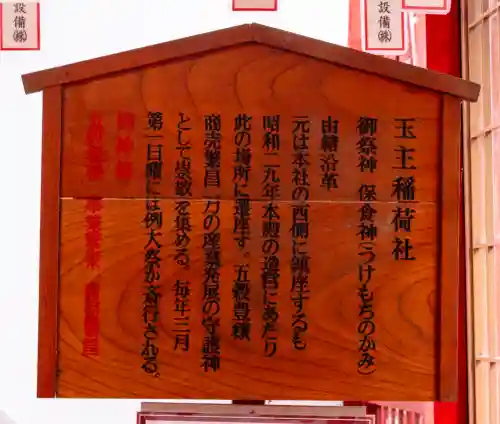 玉主稲荷社
御祭神 保食神(うけもちのかみ)
由緒沿革
元は本社の西側に鎮座するも
昭和二九年本殿の造営にあたり
此の場所に遷座す。五穀豊穣
商売繁昌 万の産業発展の守護神
として崇敬を集める。毎年三月
第一日曜には例大祭が斎行される。
御神徳
設備㈱
設備㈱